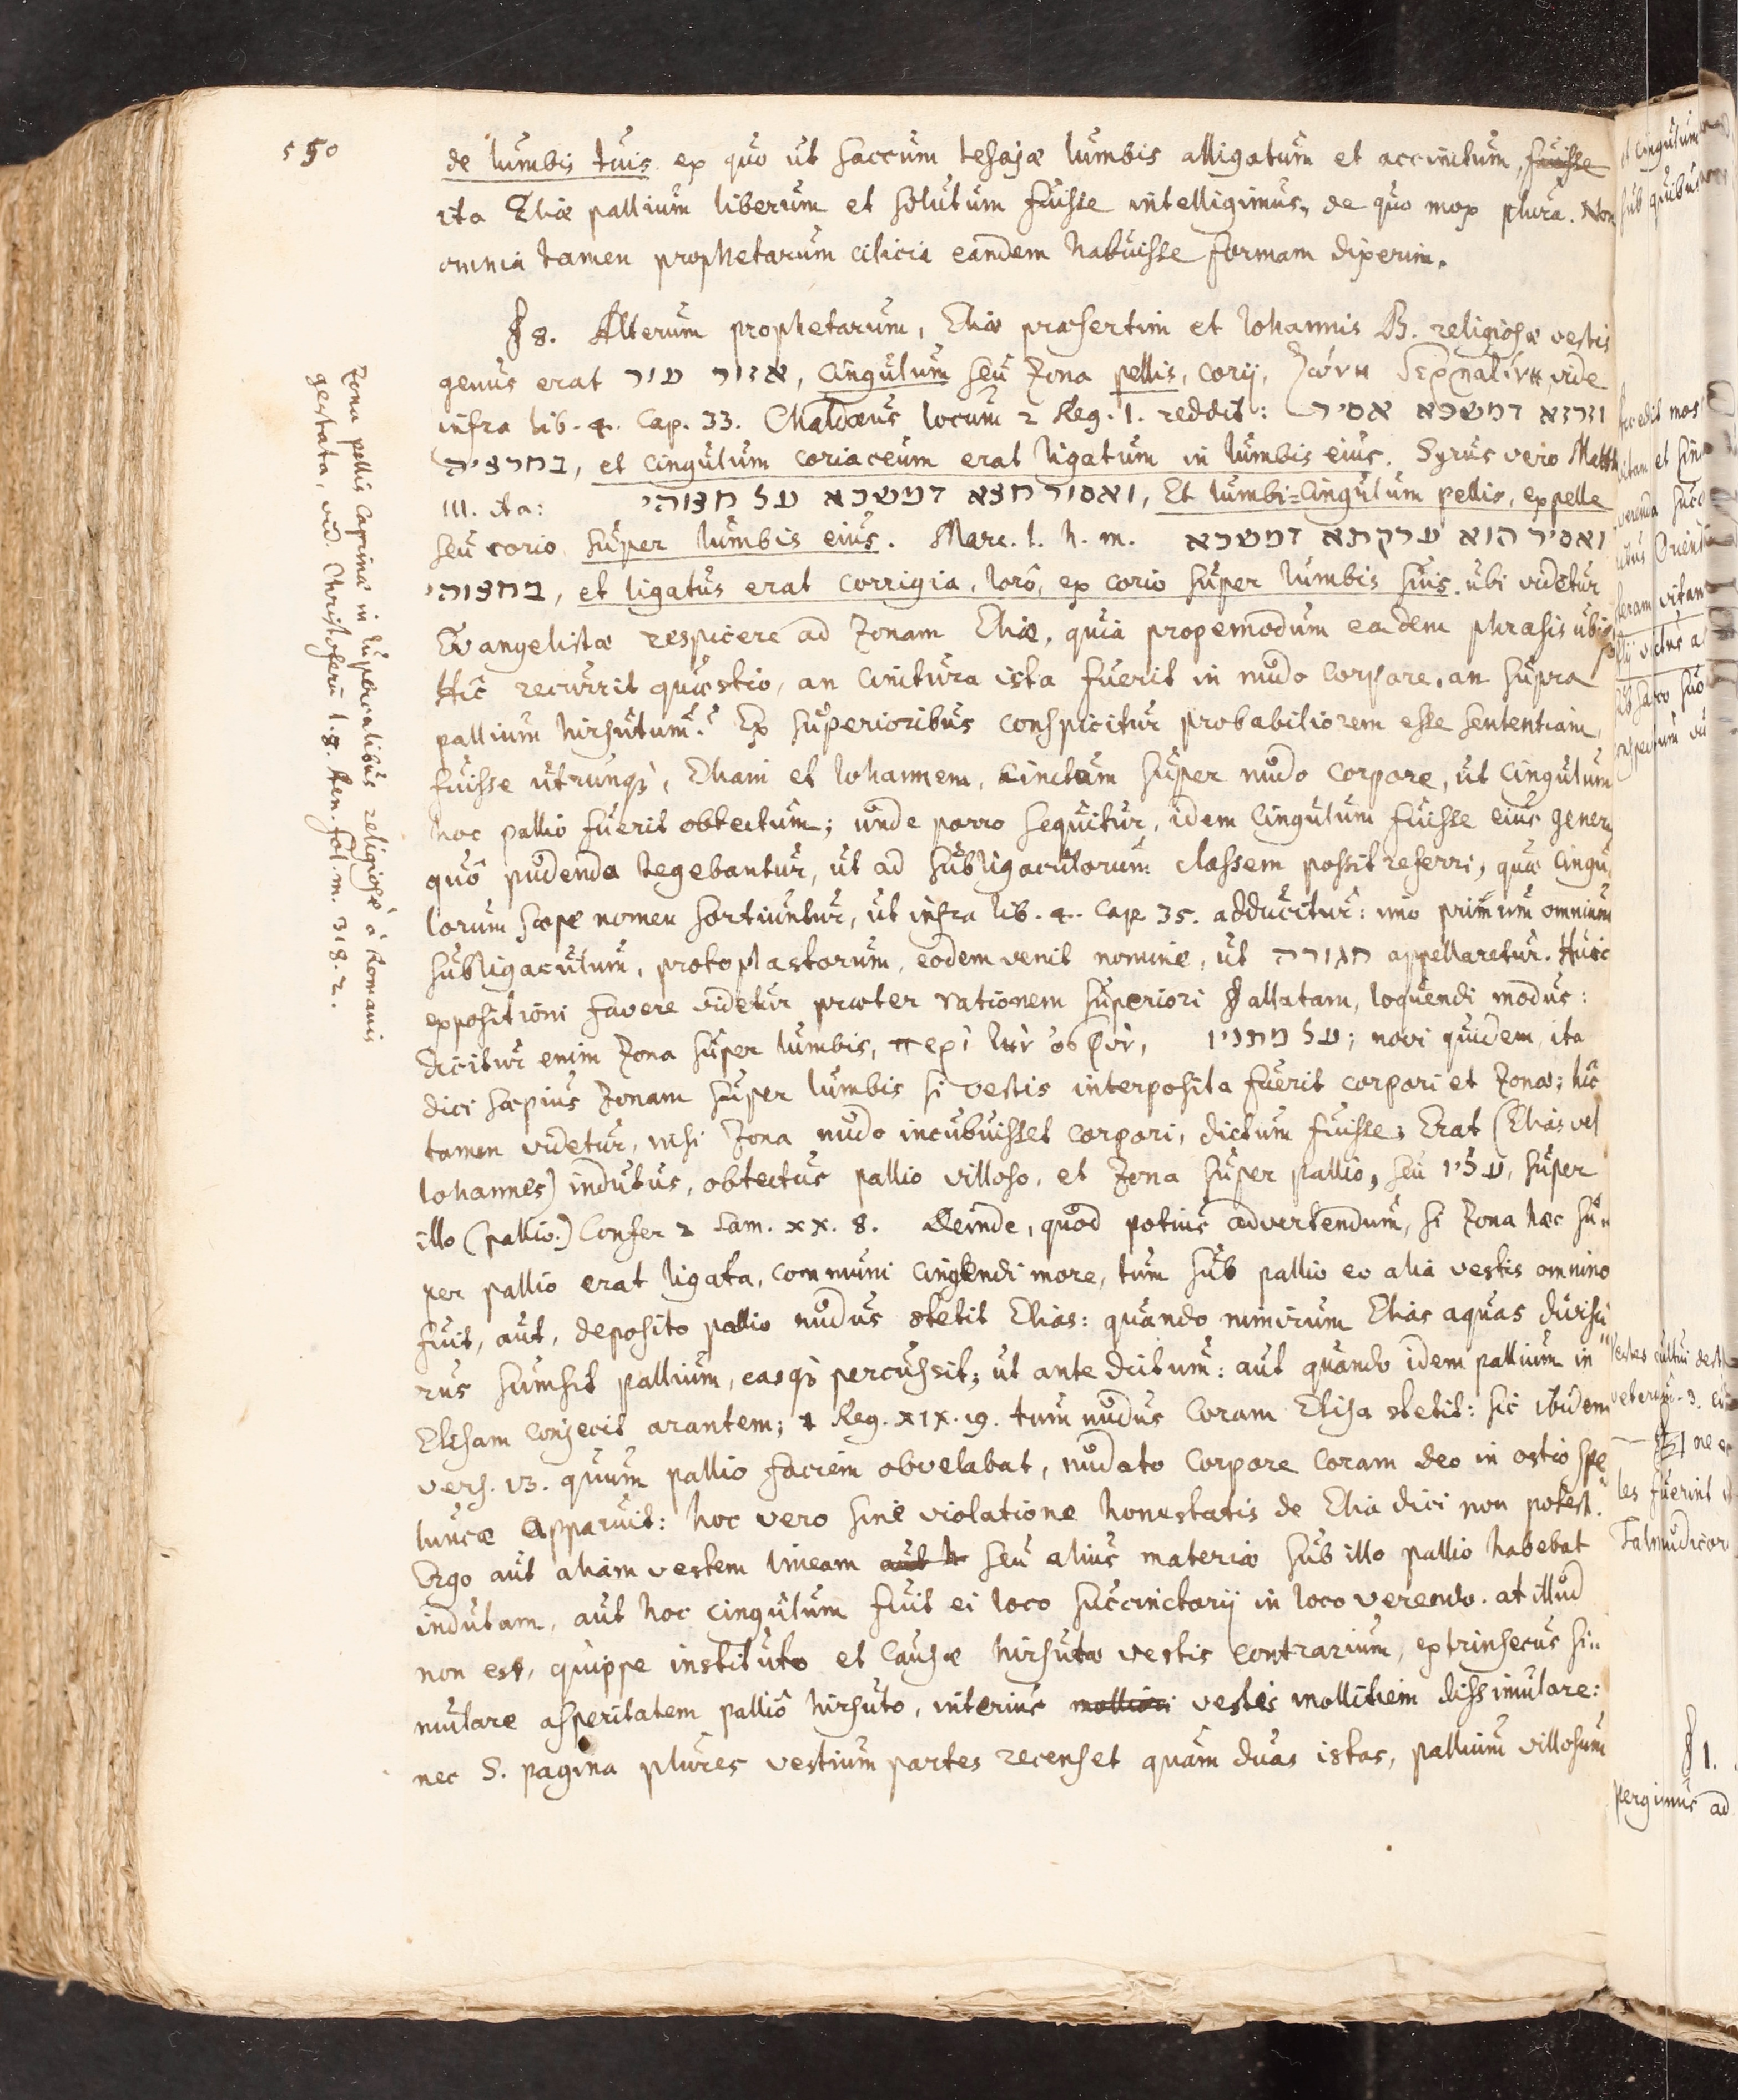 550
de lumbis tuis ex quo ut saccum Iesajæ lumbis alligatum et accinctum, fuisse
ita Eliæ pallium liberum et solutum fuisse intelligimus, de quo mox plura. Non
omnia tamen prophetarum cilicia eandem habuisse formam dixerim.
§ 8. Alterum prophetarum, Eliæ præsertim et Iohannis B. religiosæ vestis
genus erat אזור עור, cingulum seu zona pellis, corij, ζώνη δερματίνη, vide
infra lib. 4. Cap. 33. Chaldæus locum 2 Reg. 1. reddit: וזרזא דמשכא אסיר
בחרציה, et cingulum coriaceum erat ligatum in lumbis eius. Syrus vero Matth
III. ita: ואסור חצא דמשכא על חצוהי, Et lumbi=cingulum pellis, ex pelle
seu corio super lumbis eius. Marc. 1. h. m. ואסיר הוא ערקתא דמשכא
בחצוהי, et ligatus erat corrigia, lorô, ex corio super lumbis suis. ubi videtur
Evangelista respicere ad zonam Eliæ, quia propemodum eadem phrasis ubiq₃
Hîc recurrit quæstio, an cinctura ista fuerit in nudo corpore, an supra
pallium hirsutum? Ex superioribus conspicitur probabiliorem esse sententiam,
fuisse utrunq₃, Eliam et Iohannem, cinctum super nudo corpore, ut cingulum
hoc pallio fuerit obtectum; unde porro sequitur, idem cingulum fuisse eius gener
quô pudenda tegebantur, ut ad subligaculorum classem possit referri, quæ cingu
lorum sæpe nomen sortiuntur, ut infra lib. 4. Cap. 35. adducitur: imo primum omnium
subligaculum, protoplastorum, eodem venit nomine, ut חגורה appellaretur. Huic
expositioni favere videtur præter rationem superiori § allatam, loquendi modus:
dicitur enim zona super lumbis, περὶ τὴν ὀσφὺν, על מתניו; novi quidem, ita
dici sæpius zonam super lumbis si vestis interposita fuerit corpori et zonæ; hîc
tamen videtur, nisi zona nudo incubuisset corpori, dictum fuisse; Erat (Elias vel
Iohannes) indutus, obtectus pallio villoso, et zona super pallio, seu עליו, super
illo (pallio.) Confer 2 Sam. XX. 8. Deinde, quod potius advertendum, si zona hæc su=
per pallio erat ligata, communi cingendi more, tum sub pallio eo alia vestis omnino
fuit, aut, deposito pallio nudus stetit Elias: quando nimirum Elias aquas divisu
rus sumsit pallium, easq₃ percussit; ut ante dictum: aut quando idem pallium in=
Elisam conjecit arantem; 1 Reg. XIX. 19. tum nudus coram Elisa stetit: sic ibidem
vers. 13. quum pallio faciem obvelabat, nudato corpore coram deo in ostio spe
luncæ apparuit: hoc vero sine violatione honestatis de Elia dici non potest.
Ergo aut aliam vestem lineam aut seu alius materiæ sub illo pallio habebat
indutam, aut hoc cingulum fuit ei loco succinctorij in loco verendo. at illud
non est, quippe instituto et causæ hirsutæ vestis contrarium, extrinsecus si=
mulare asperitatem palliô hirsuto, interius molliori vestis mollitiem dissimulare:
nec S. pagina plures vestium partes recenset quàm duas istas, pallium villosum
Zona pellis caprinæ in Lupercalibus religiosè à Romanis
gestata, vid. Christoferū l. 8. fol. m. 318. 2.
et cingulum
sub quibus
vitam
Talmudicor
§ 1.
pergimus ad